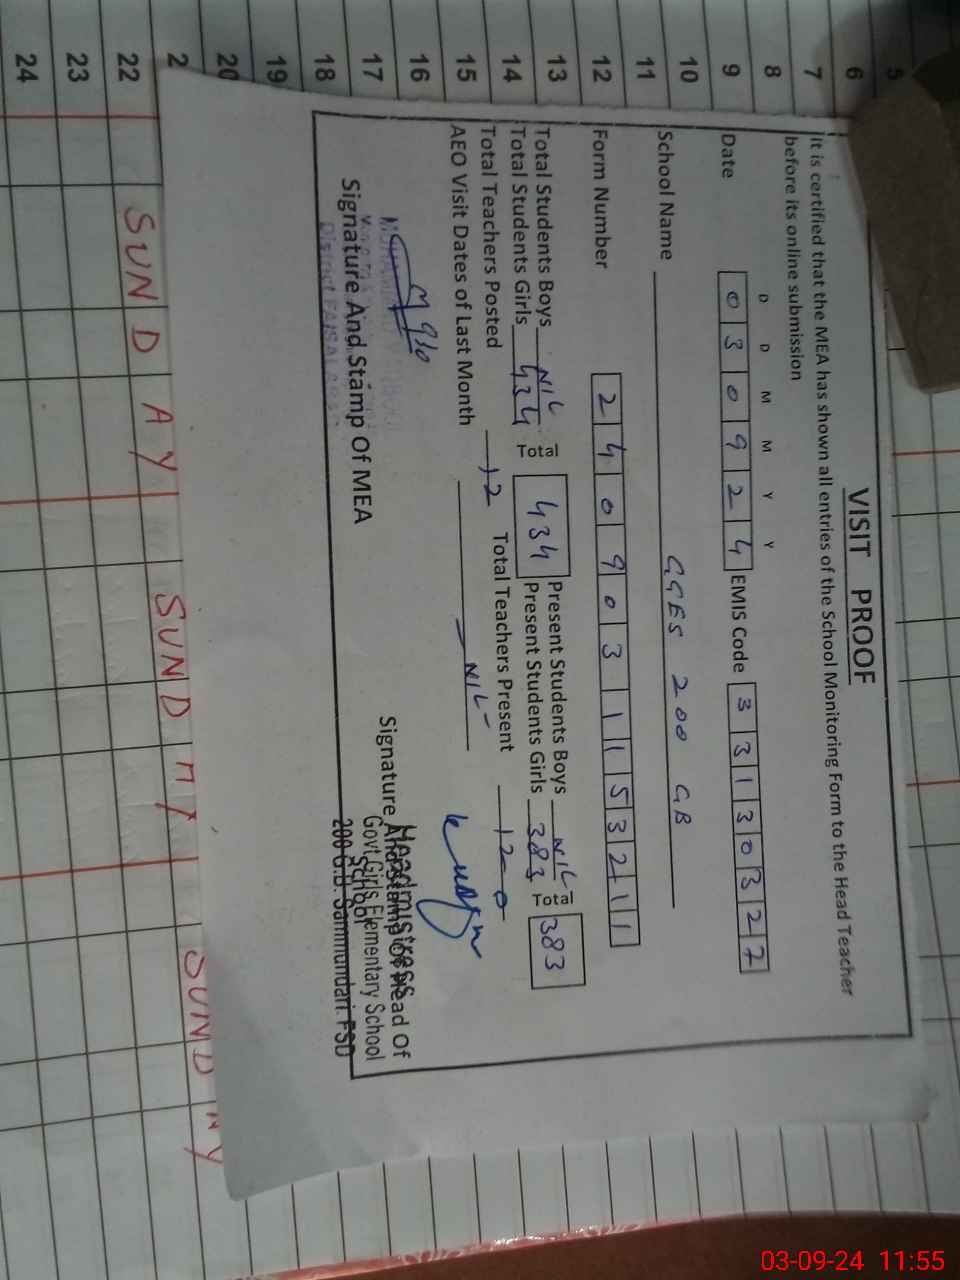 VISIT PROOF
It is certified that the MEA has shown all entries of the School Monitoring Form to the Head Teacher
before its online submission
D D M M Y Y
Date 0 3 0 9 2 4 EMIS Code 3 3 1 3 0 3 2 7
School Name GGES 200 GB
Form Number 2 4 0 9 0 3 1 1 5 3 2 1 1
Total Students Boys NIL Total 434 Present Students Boys NIL Total 383
Total Students Girls 434 Present Students Girls 383
Total Teachers Posted 12 Total Teachers Present 12-0
AEO Visit Dates of Last Month - NIL -
Signature And Stamp Of MEA
District FAISALABAD
Signature And Stamp Of Head Of
School
Headmistress
Govt Girls Elementary School
200 G.B. Sammundari. FSD
5
6
7
8
9
10
11
12
13
14
15
16
17
18
19
20
2
22
23
24
SUNDAY SUNDAY SUNDAY
03-09-24 11:55